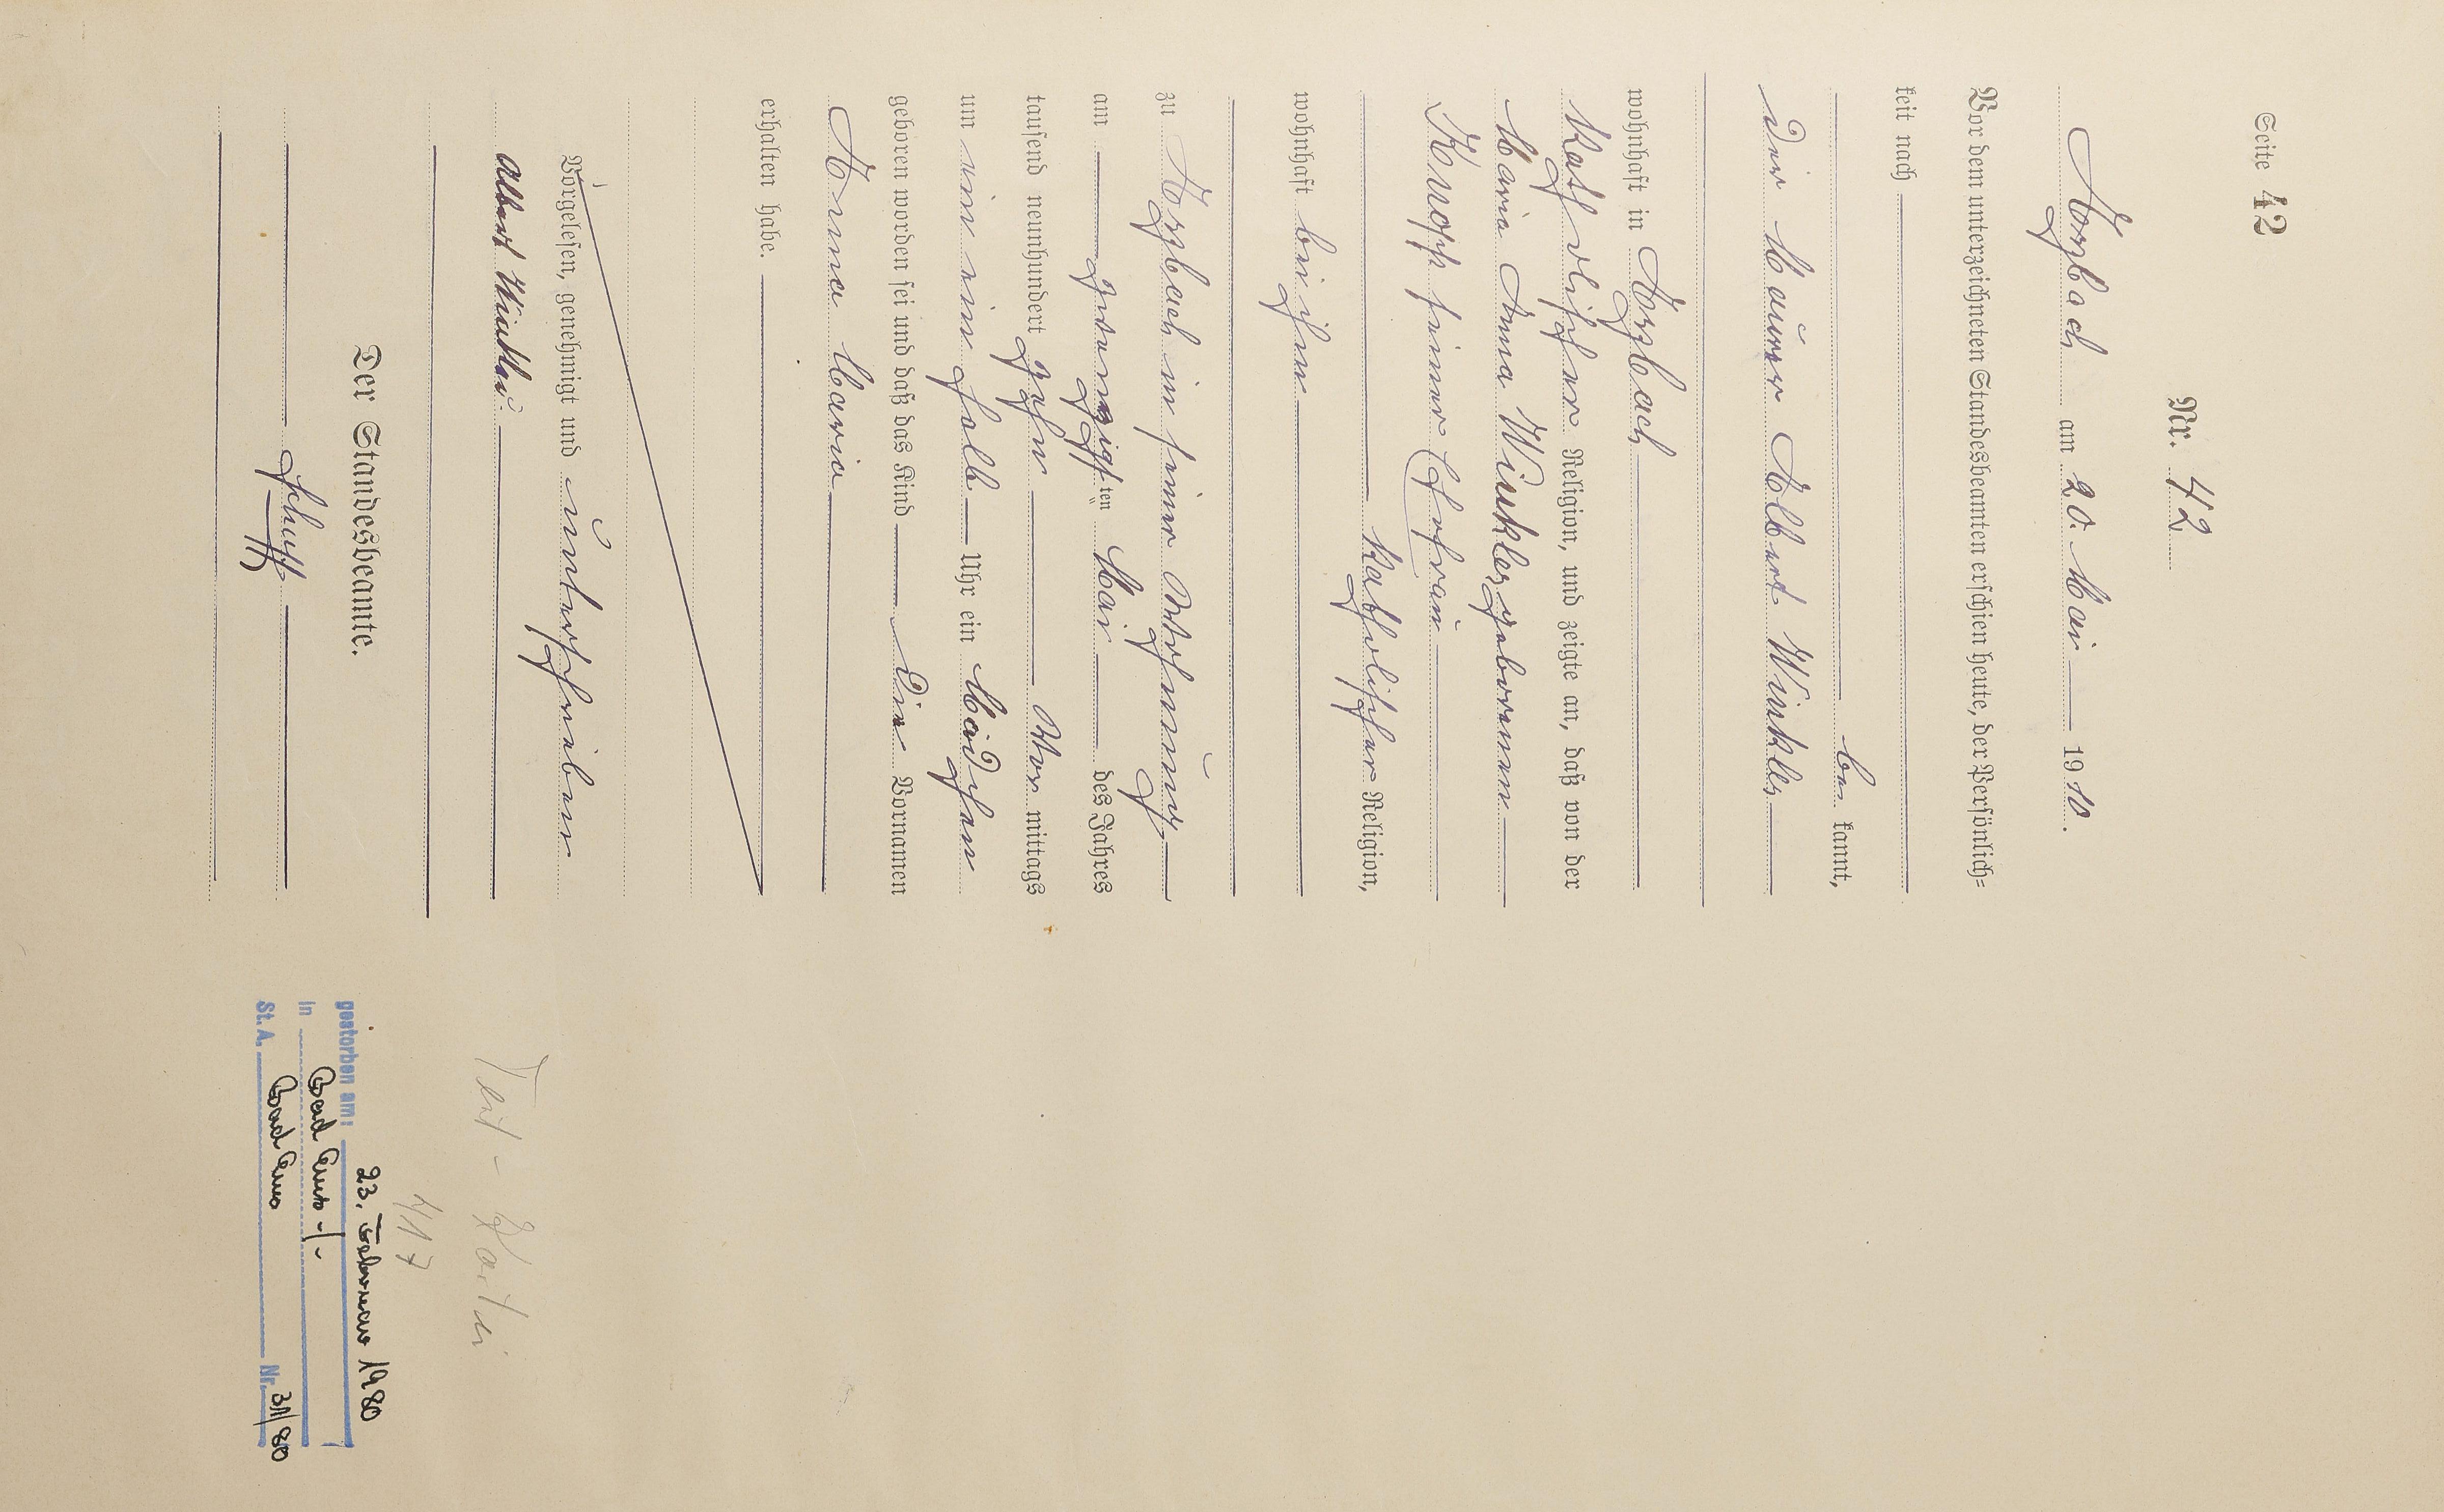 Seite 42
Nr. 42
Arzbach am 20. Mai 1910.
Vor dem unterzeichneten Standesbeamten erschien heute, der Persönlich=
keit nach
be kannt,
der Maurer Albert Winkler
wohnhaft in Arzbach
katholischer Religion, und zeigte an, daß von der
Maria Anna Winkler geborenen
Knopp seiner Ehefrau
katholischer Religion,
wohnhaft bei ihm
zu Arzbach in seiner Wohnung
am zwanzigsten Mai des Jahres
tausend neunhundert zehn Vor mittags
um ein ein halb Uhr ein Mädchen
geboren worden sei und daß das Kind die Vornamen
Anna Maria
erhalten habe.
Vorgelesen, genehmigt und unterschrieben
Albert Winkler.
Der Standesbeamte.
Schupp
4/17
gestorben am: 23. Februar 1980
in Bad Ems -/-
St. A. Bad Ems Nr. 31/80